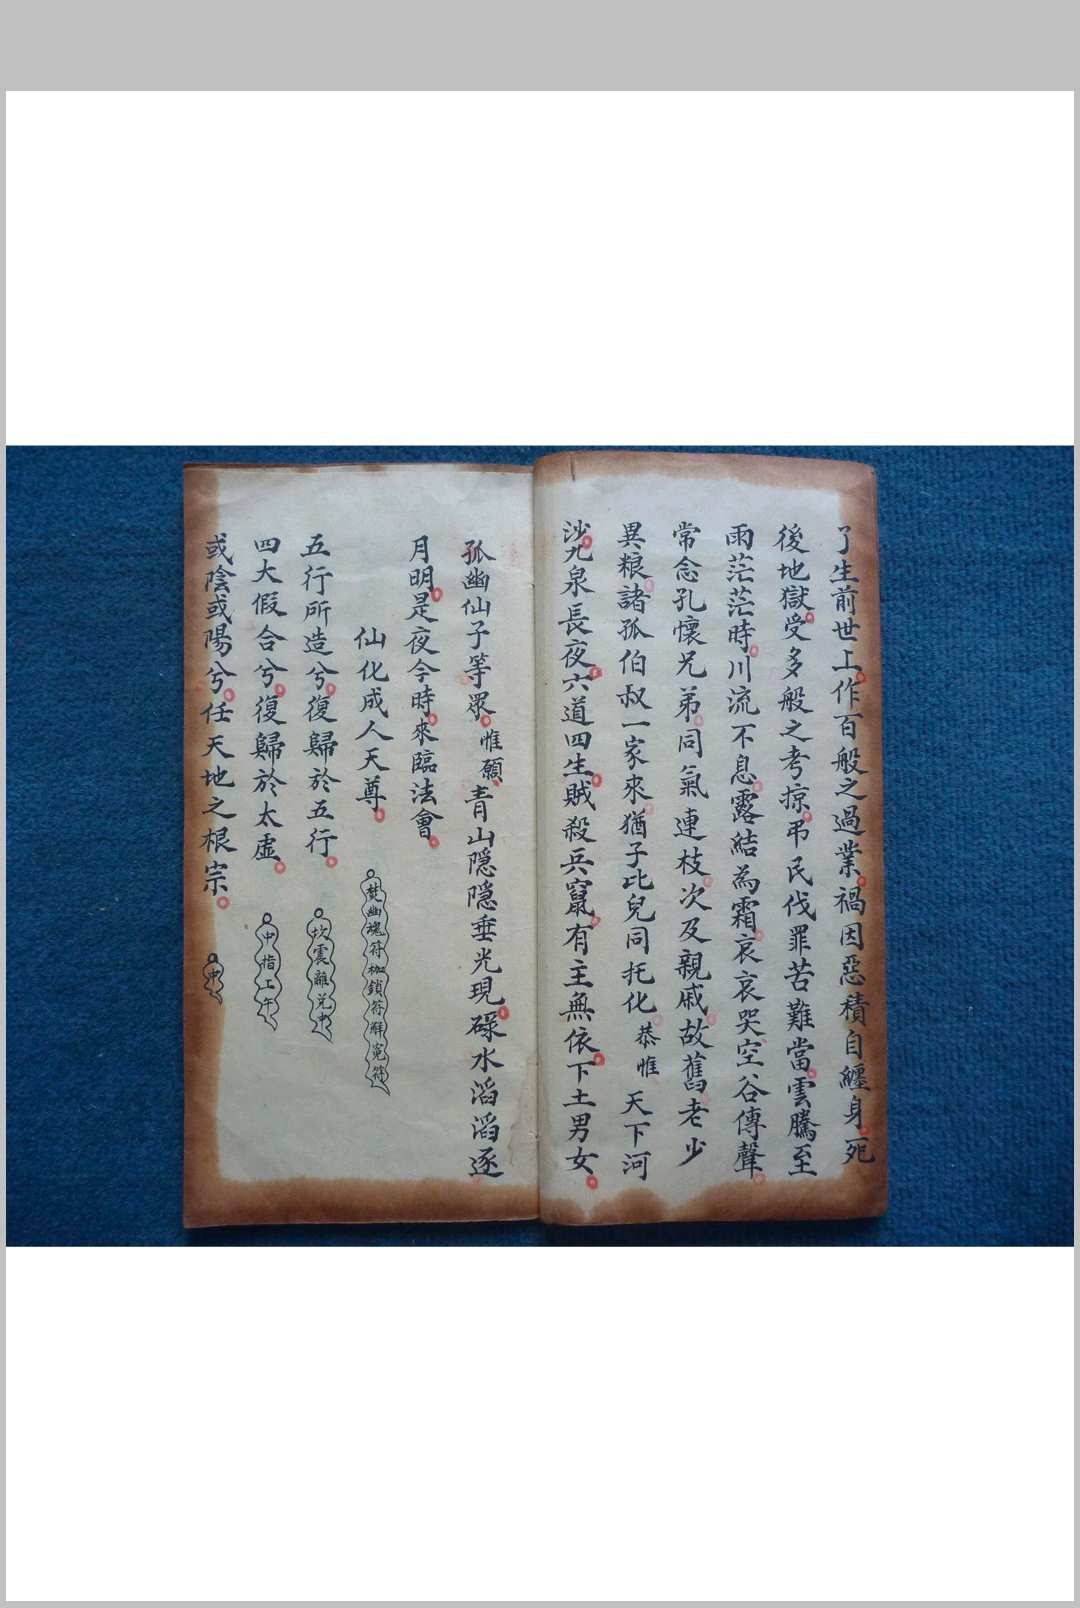 了生前世上作百般之過業禍因惡積自纏身死
後地獄受多般之考掠弔民伐罪苦難當雲騰至
雨茫茫時川流不息露結為霜哀哀哭空谷傳聲
常念孔懷兄弟同氣連枝次及親戚故舊老少
異粮諸孤伯叔一家來猶子比兒同托化恭惟天下河
沙九泉長夜六道四生賊殺兵竄有主無依下土男女
孤幽仙子等眾惟願青山隱隱垂光現碌水滔滔逐
月明是夜今時來臨法會
仙化成人天尊
焚幽魂符枷鎖符解寃符
五行所造兮復歸於五行
坎震離兌中
四大假合兮復歸於太虛
中指上午
或陰或陽兮任天地之根宗
中